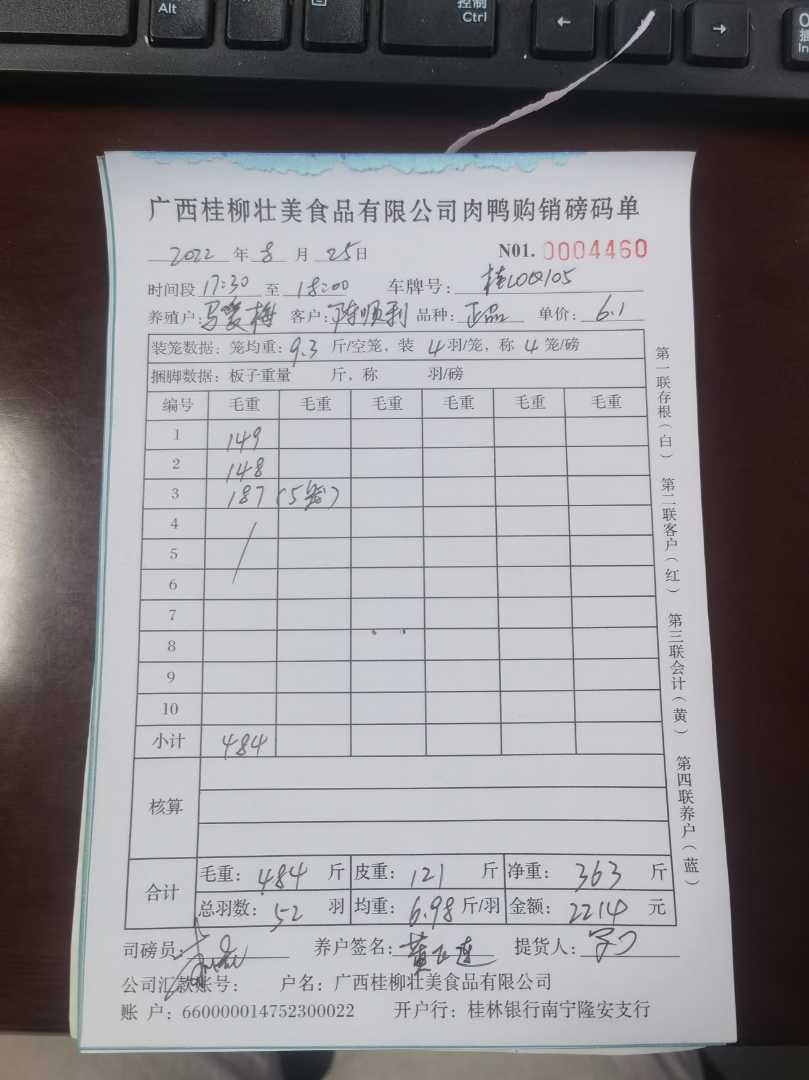 Alt
控制
Ctrl
←
→
广西桂柳壮美食品有限公司肉鸭购销磅码单
2022 年 8 月 25 日 N01. 0004460
时间段 17:30 至 18:00 车牌号：桂L0Q105
养殖户： 客户：陈顺利 品种：正品 单价：6.1
装笼数据：笼均重：9.3 斤/空笼，装 4 羽/笼，称 4 笼/磅
捆脚数据：板子重量 斤，称 羽/磅
编号 毛重 毛重 毛重 毛重 毛重 毛重
1 149
2 148
3 187 (5笼)
4
5
6
7
8
9
10
小计 484
核算
合计 毛重：484 斤 皮重：121 斤 净重：363 斤
总羽数：52 羽 均重：6.98 斤/羽 金额：2214 元
司磅员： 养户签名： 提货人：
公司汇款账号： 户名：广西桂柳壮美食品有限公司
账 户：660000014752300022 开户行：桂林银行南宁隆安支行
第一联存根（白） 第二联客户（红） 第三联会计（黄） 第四联养户（蓝）